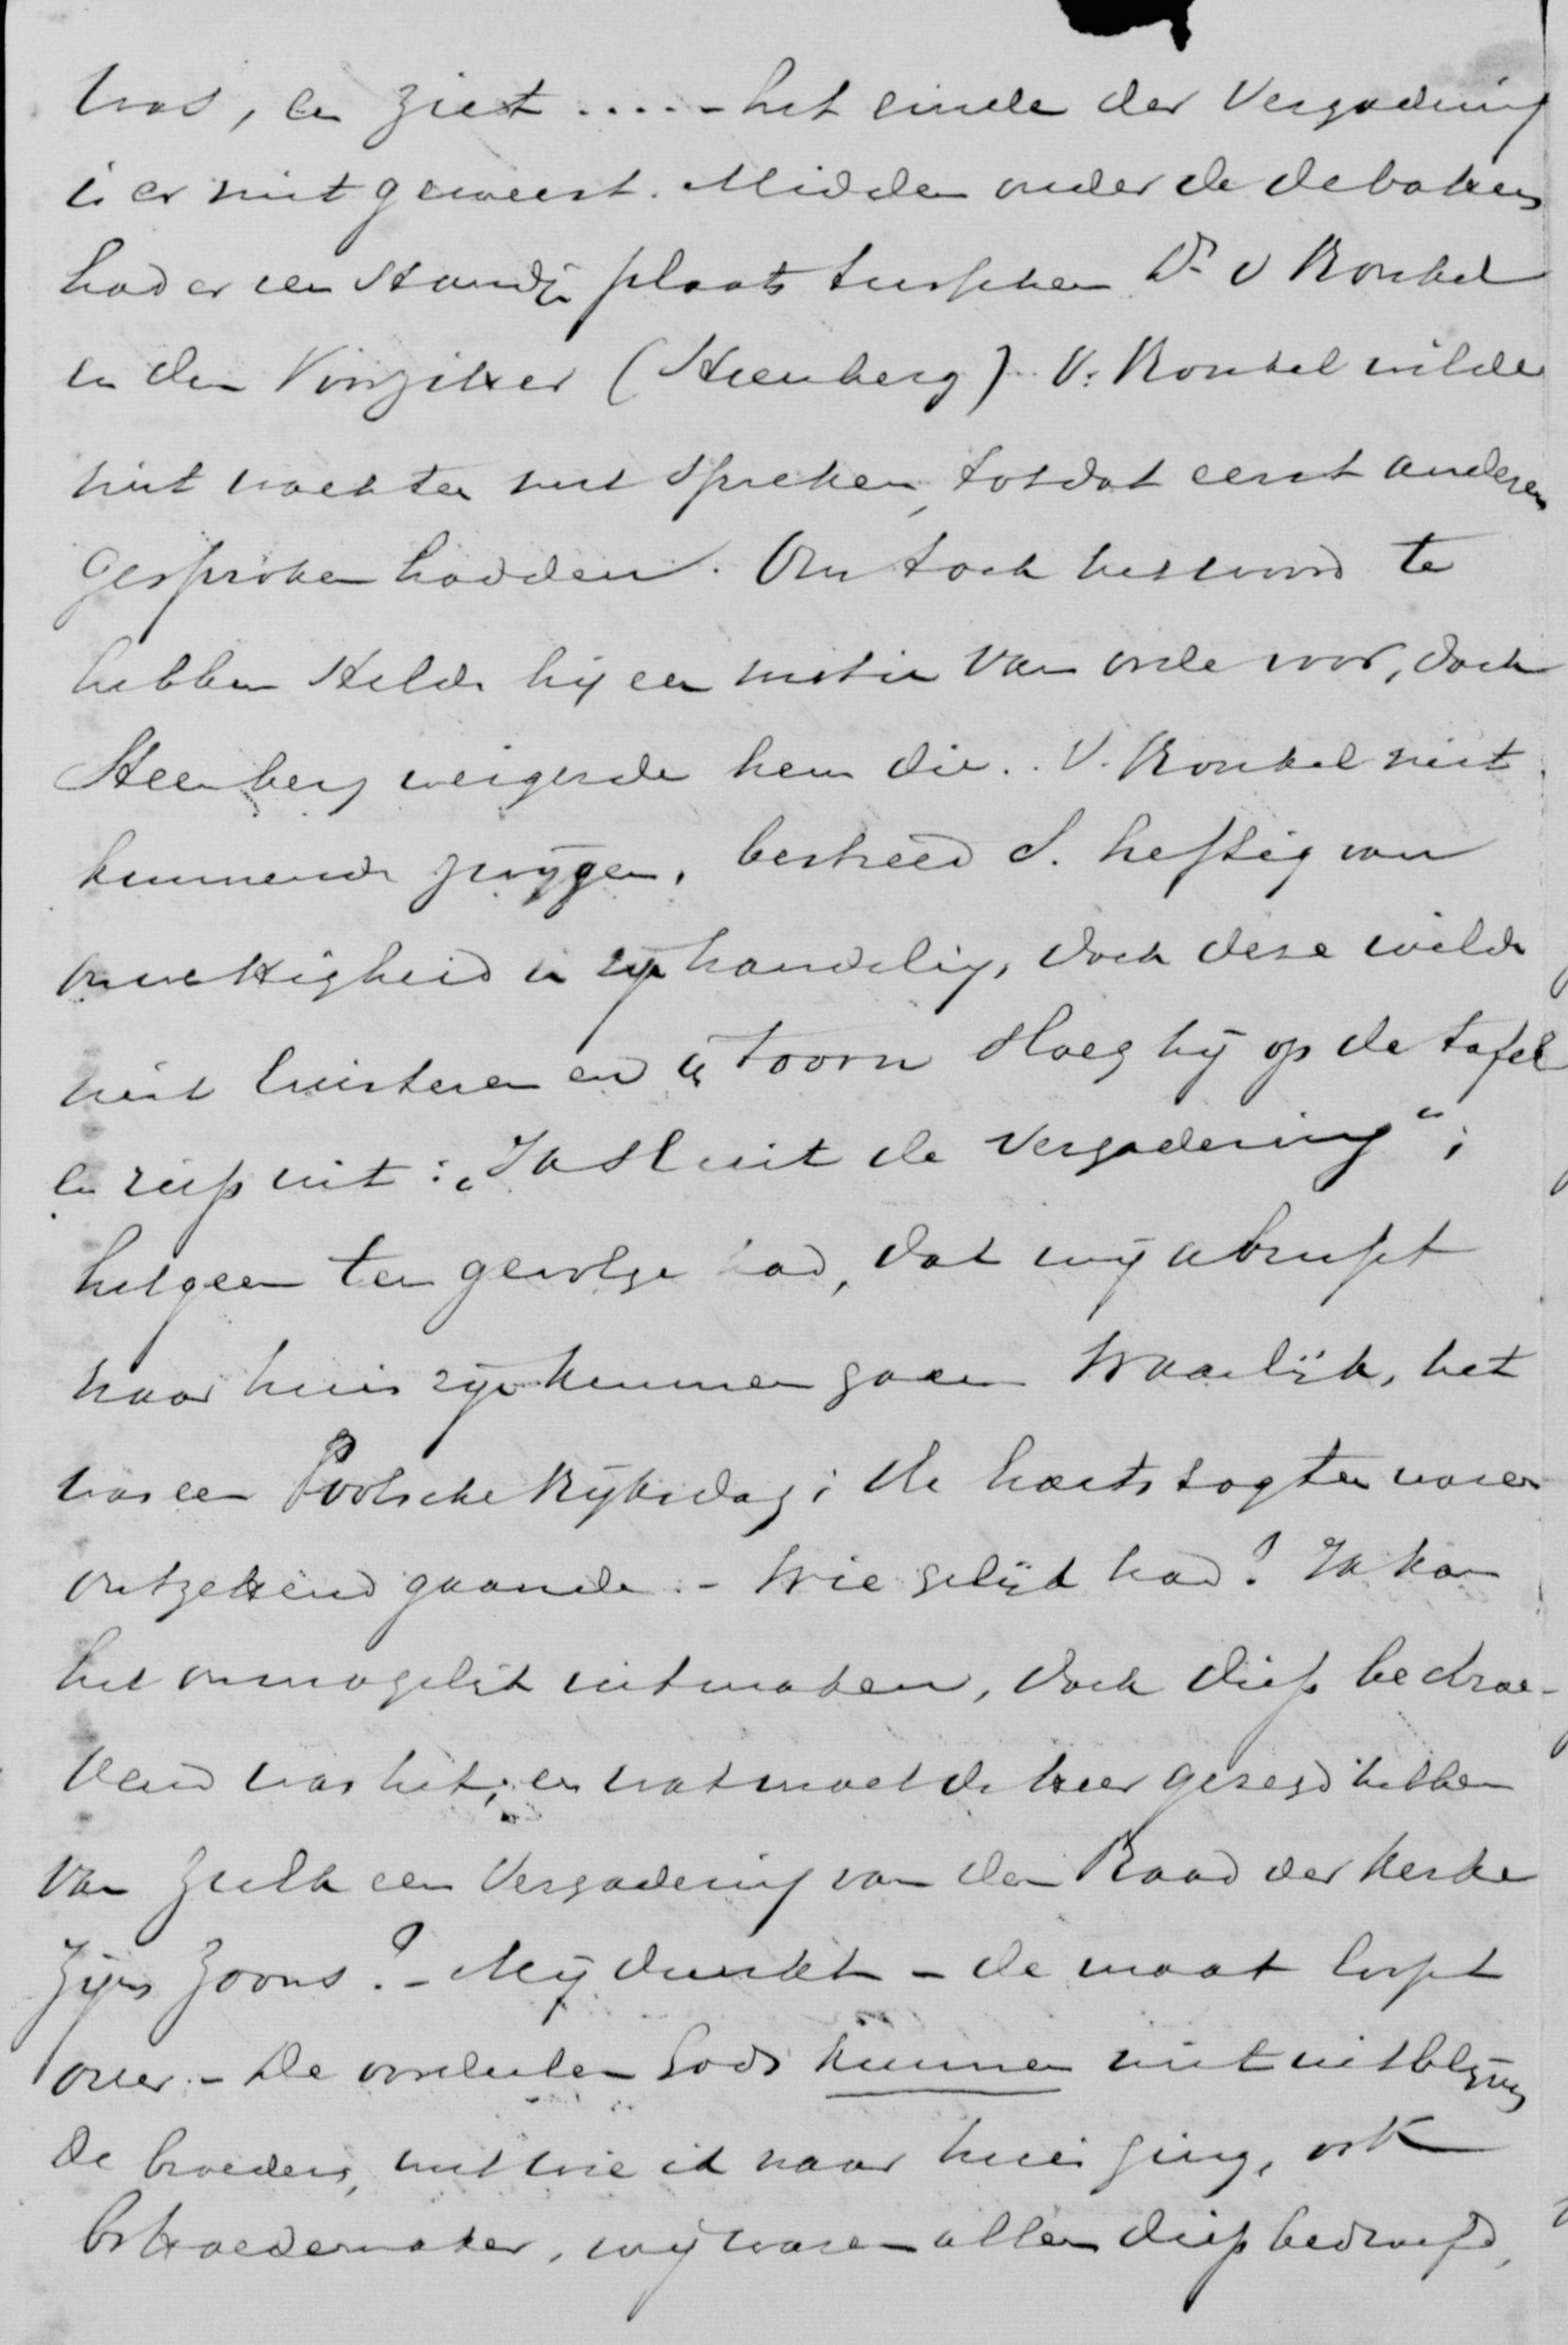 was, en ziet ..... - het einde der Vergadering
is er niet geweest. Midden onder de debatten
had er een standje plaats tusschen Dr. v Ronkel
en den Voorzitter (Steenberg). V. Ronkel wilde
niet wachten met spreken, totdat eerst anderen
gesproken hadden. Om toch het woord te
hebben stelde hij een motie van orde voor, doch
Steenberg weigerde hem die. V. Ronkel niet
kunnende zwijgen, bestreed S. heftig van
onwettigheid in zijn handeling, doch deze wilde
niet luisteren en in toorn sloeg hij op de tafel
en riep uit: „Ik sluit de Vergadering";
hetgeen ten gevolge had, dat wij abrupt
naar huis zijn kunnen gaan. Waarlijk, het
was een Poolsche Rijksdag; de hartstogten waren
ontzettend gaande. - Wie gelijk had? Ik kan
het onmogelijk uitmaken, doch diep bedroe-
vend was het, en wat moet de Heer gezegd hebben
van zulk een Vergadering van den Raad der Kerke
Zijns Zoons? - Mij dunkt - de maat loopt
over. - De oordeelen Gods kunnen niet uitblijven
De broeders, met wie ik naar huis ging, ook
br Hoedemaker, wij waren allen diep bedroefd,